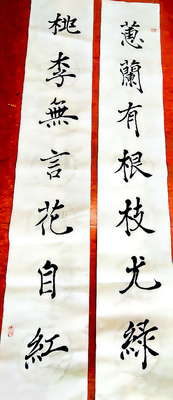 蕙蘭有根枝尤綠
桃李無言花自紅